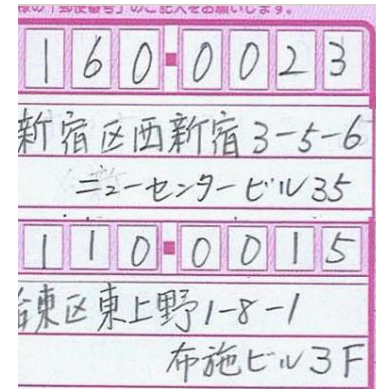 様の「郵便番号」のご記入をお願いします。
160-0023
新宿区西新宿3-5-6
ニューセンタービル35
110-0015
台東区東上野1-8-1
布施ビル3F